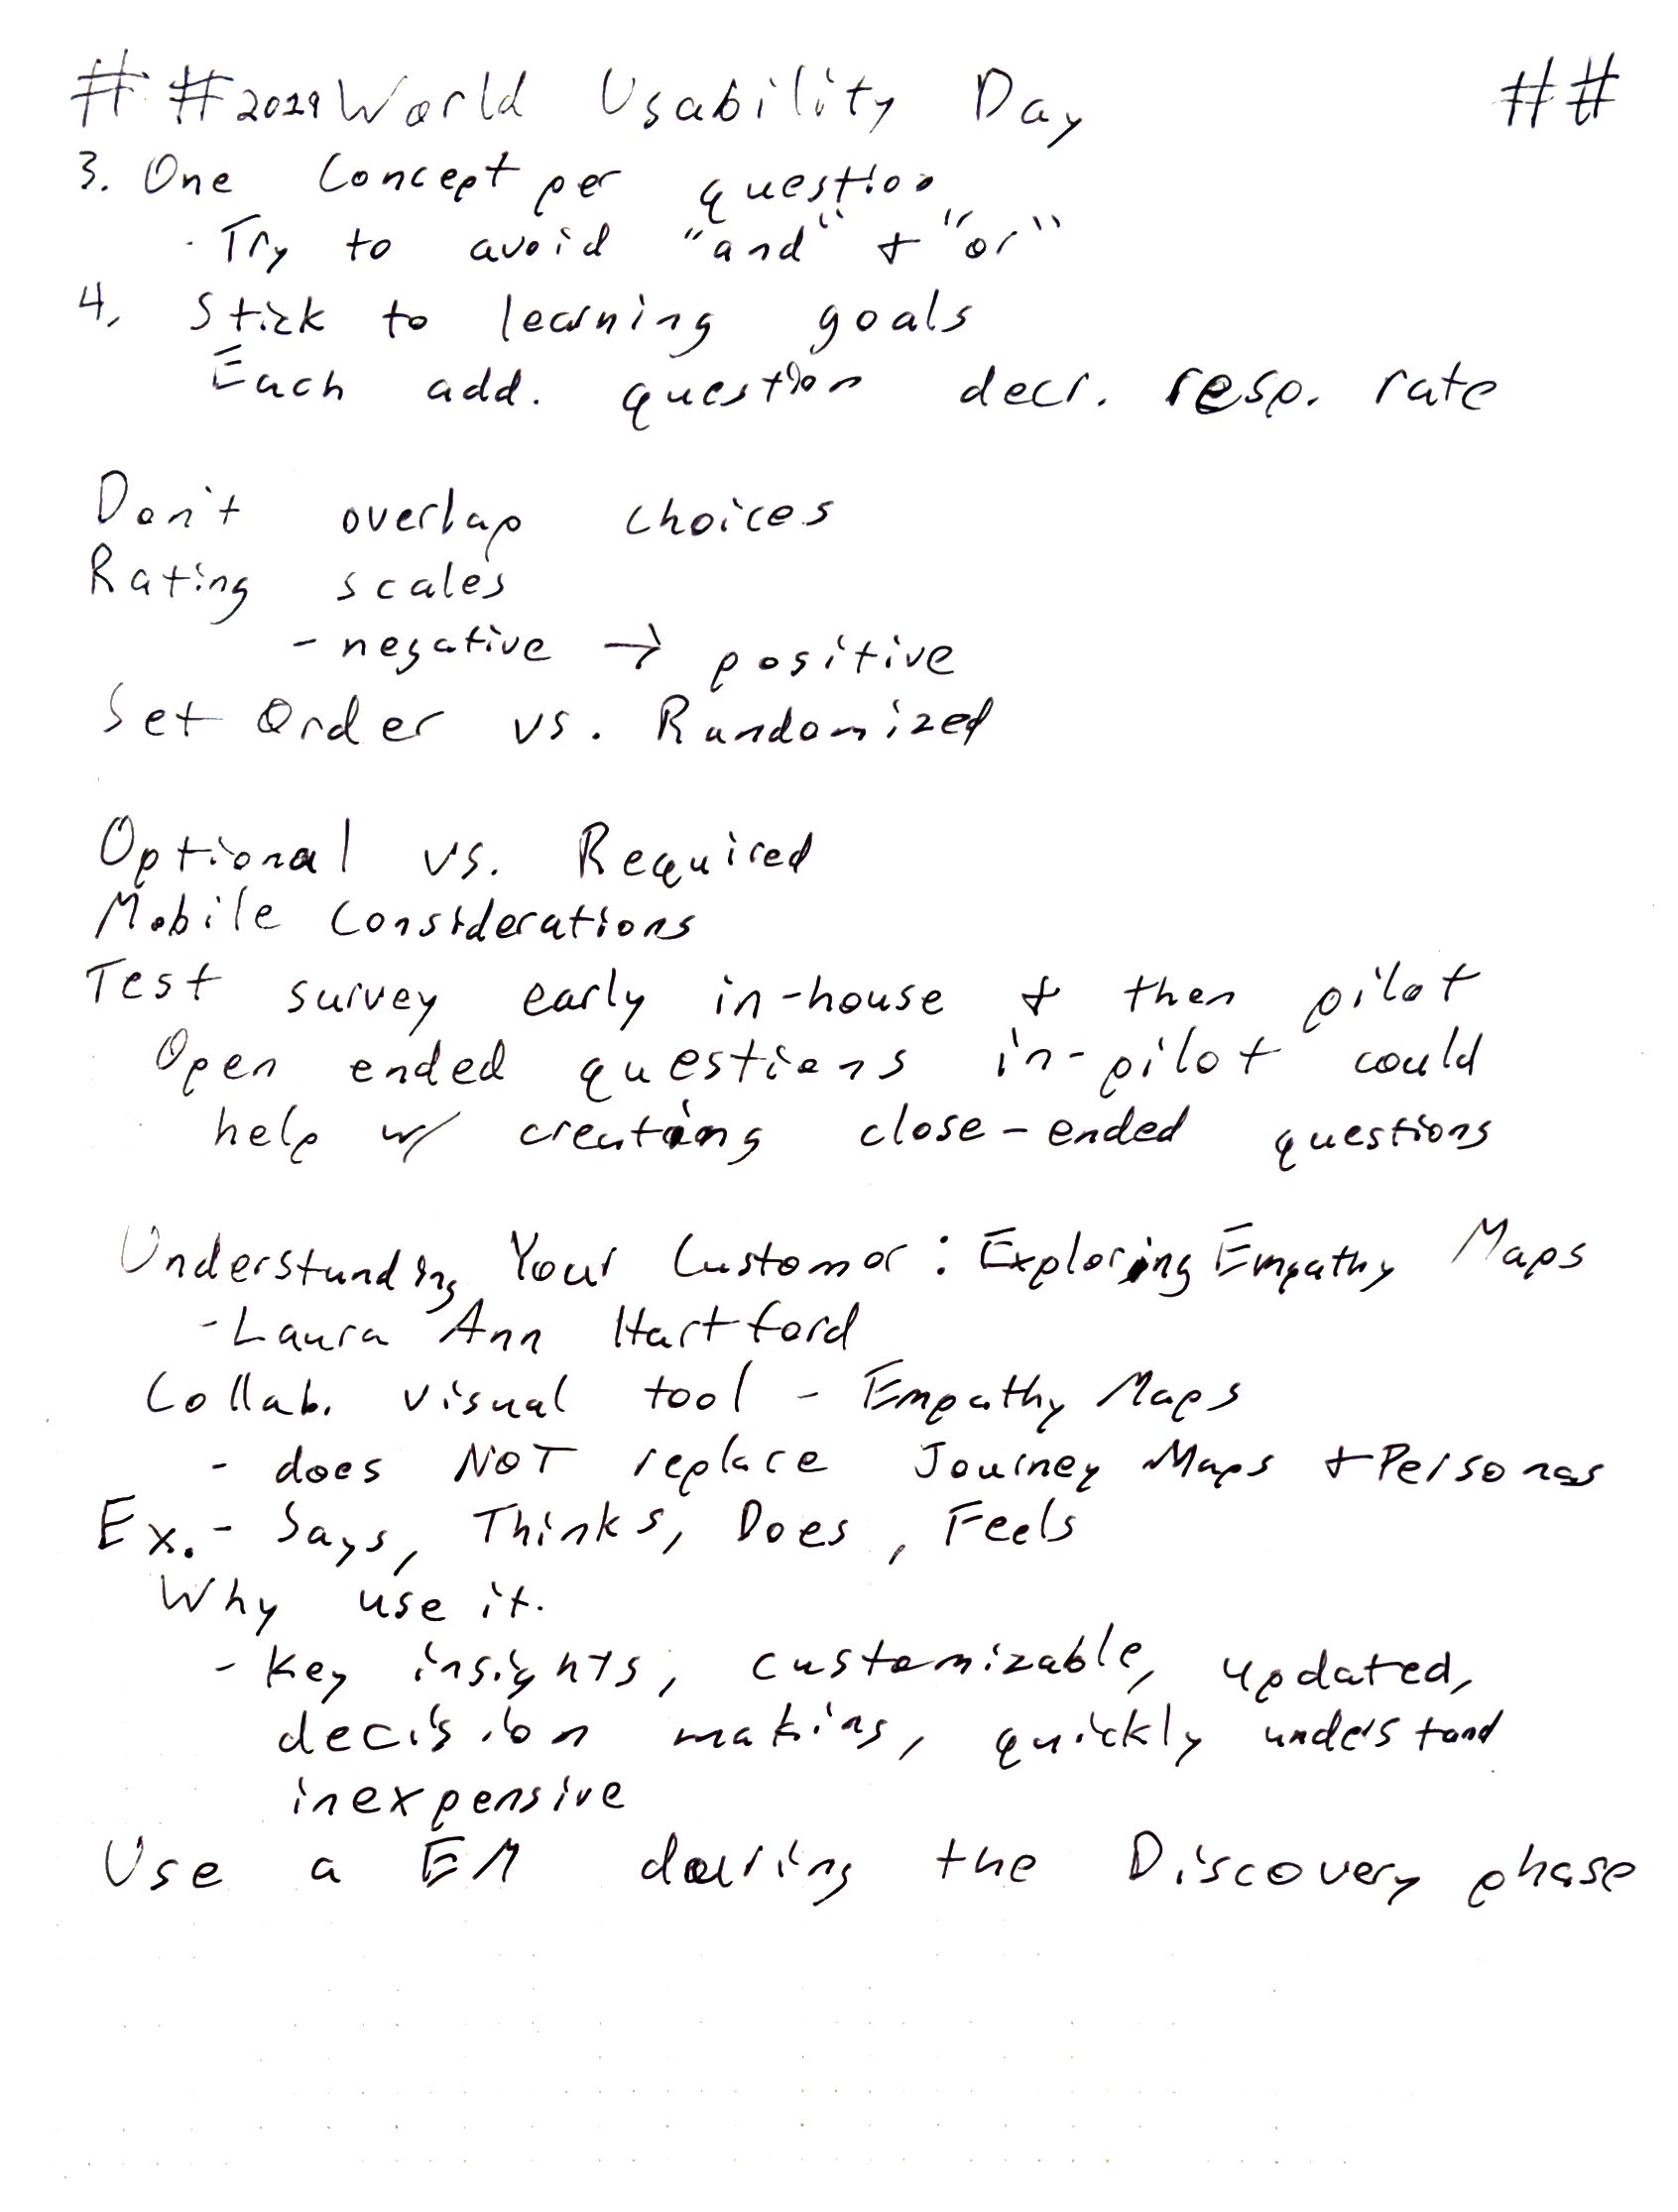 # #2019 World Usability Day ##
3. One Concept per question
· Try to avoid "and" + "or"
4. Stick to learning goals
Each add. question decr. resp. rate
Don't overlap choices
Rating scales
- negative → positive
Set Order vs. Randomized
Optional vs. Required
Mobile Considerations
Test survey early in-house + then pilot
Open ended questions in-pilot could
help w/ creating close-ended questions
Understanding Your Customor: Exploring Empathy Maps
- Laura Ann Hartford
Collab. visual tool - Empathy Maps
- does NOT replace Journey Maps + Personas
Ex. - Says, Thinks, Does, Feels
Why use it.
- Key insights, customizable, updated,
decision making, quickly understand
inexpensive
Use a EM during the Discovery phase